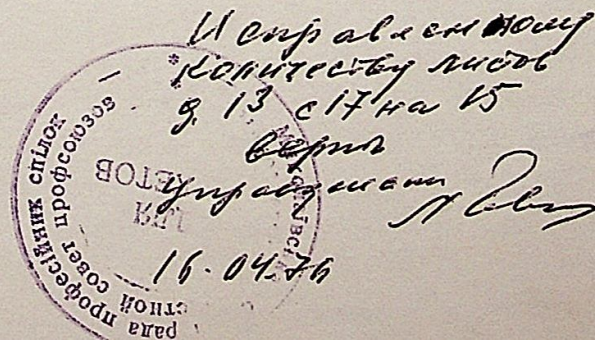 Исправленному
количеству листов
д. 13 с 17 на 15
верить
16.04.76
рада професійних спілок
стной совет профсоюзов
ДЛЯ
КЕТОВ